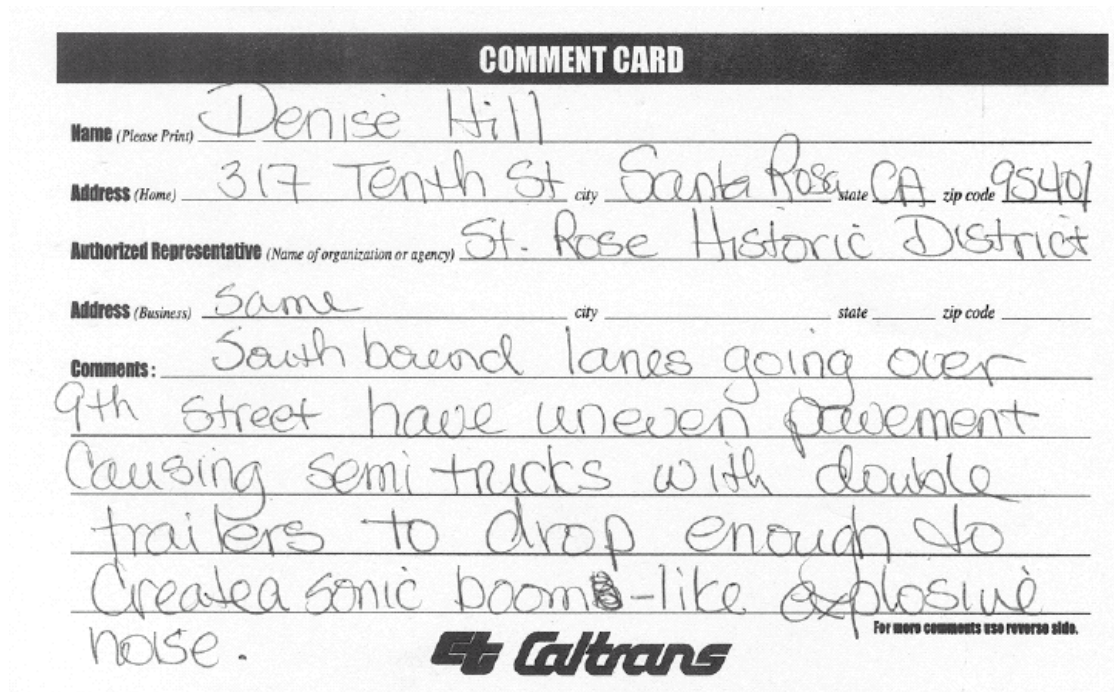 COMMENT CARD
Name (Please Print) Denise Hill
Address (Home) 317 Tenth St city Santa Rosa state CA zip code 95401
Authorized Representative (Name of organization or agency) St. Rose Historic District
Address (Business) Same city state zip code
Comments: South bound lanes going over
9th street have uneven pavement
Causing semi trucks with double
trailers to drop enough to
Create a sonic boom-like explosive
For more comments use reverse side.
noise.
Ct Caltrans